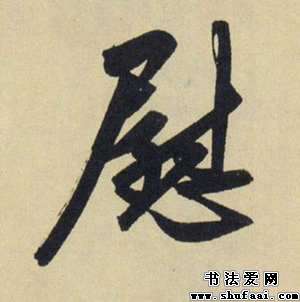 慰
书法爱网
www.shufaai.com